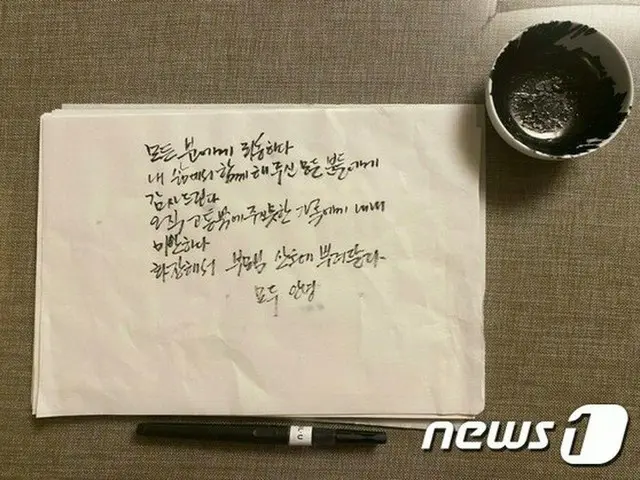 모든 분에게 죄송하다
내 삶에서 함께 해주신 모든 분들에게
감사드린다
오직 고통밖에 주지 못한 가족에게 내내
미안하다
화장해서 부모님 산소에 뿌려달라.
모두 안녕
news1